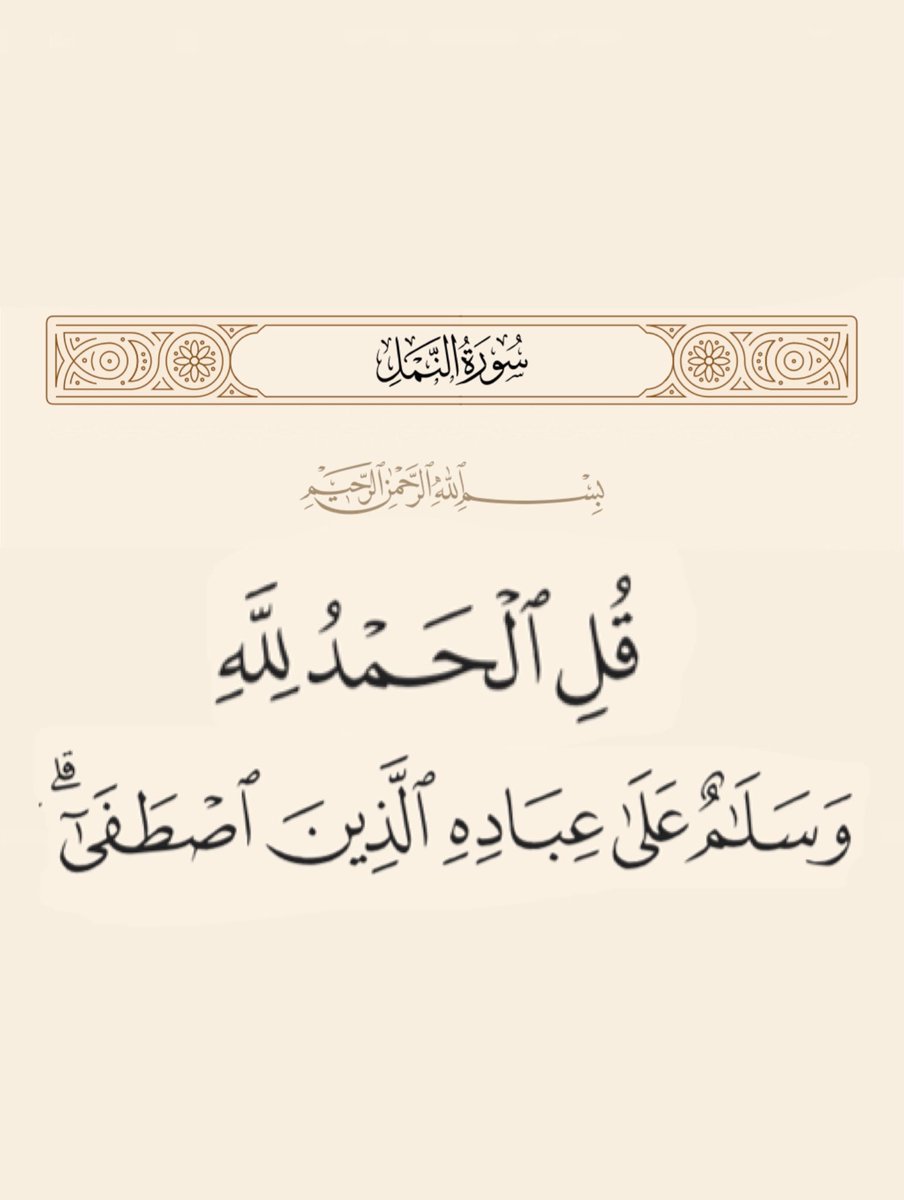 سُورَةُ النَّمْلِ
بِسْمِ ٱللَّهِ ٱلرَّحْمَٰنِ ٱلرَّحِيمِ
قُلِ ٱلْحَمْدُ لِلَّهِ
وَسَلَٰمٌ عَلَىٰ عِبَادِهِ ٱلَّذِينَ ٱصْطَفَىٰٓ ۗ